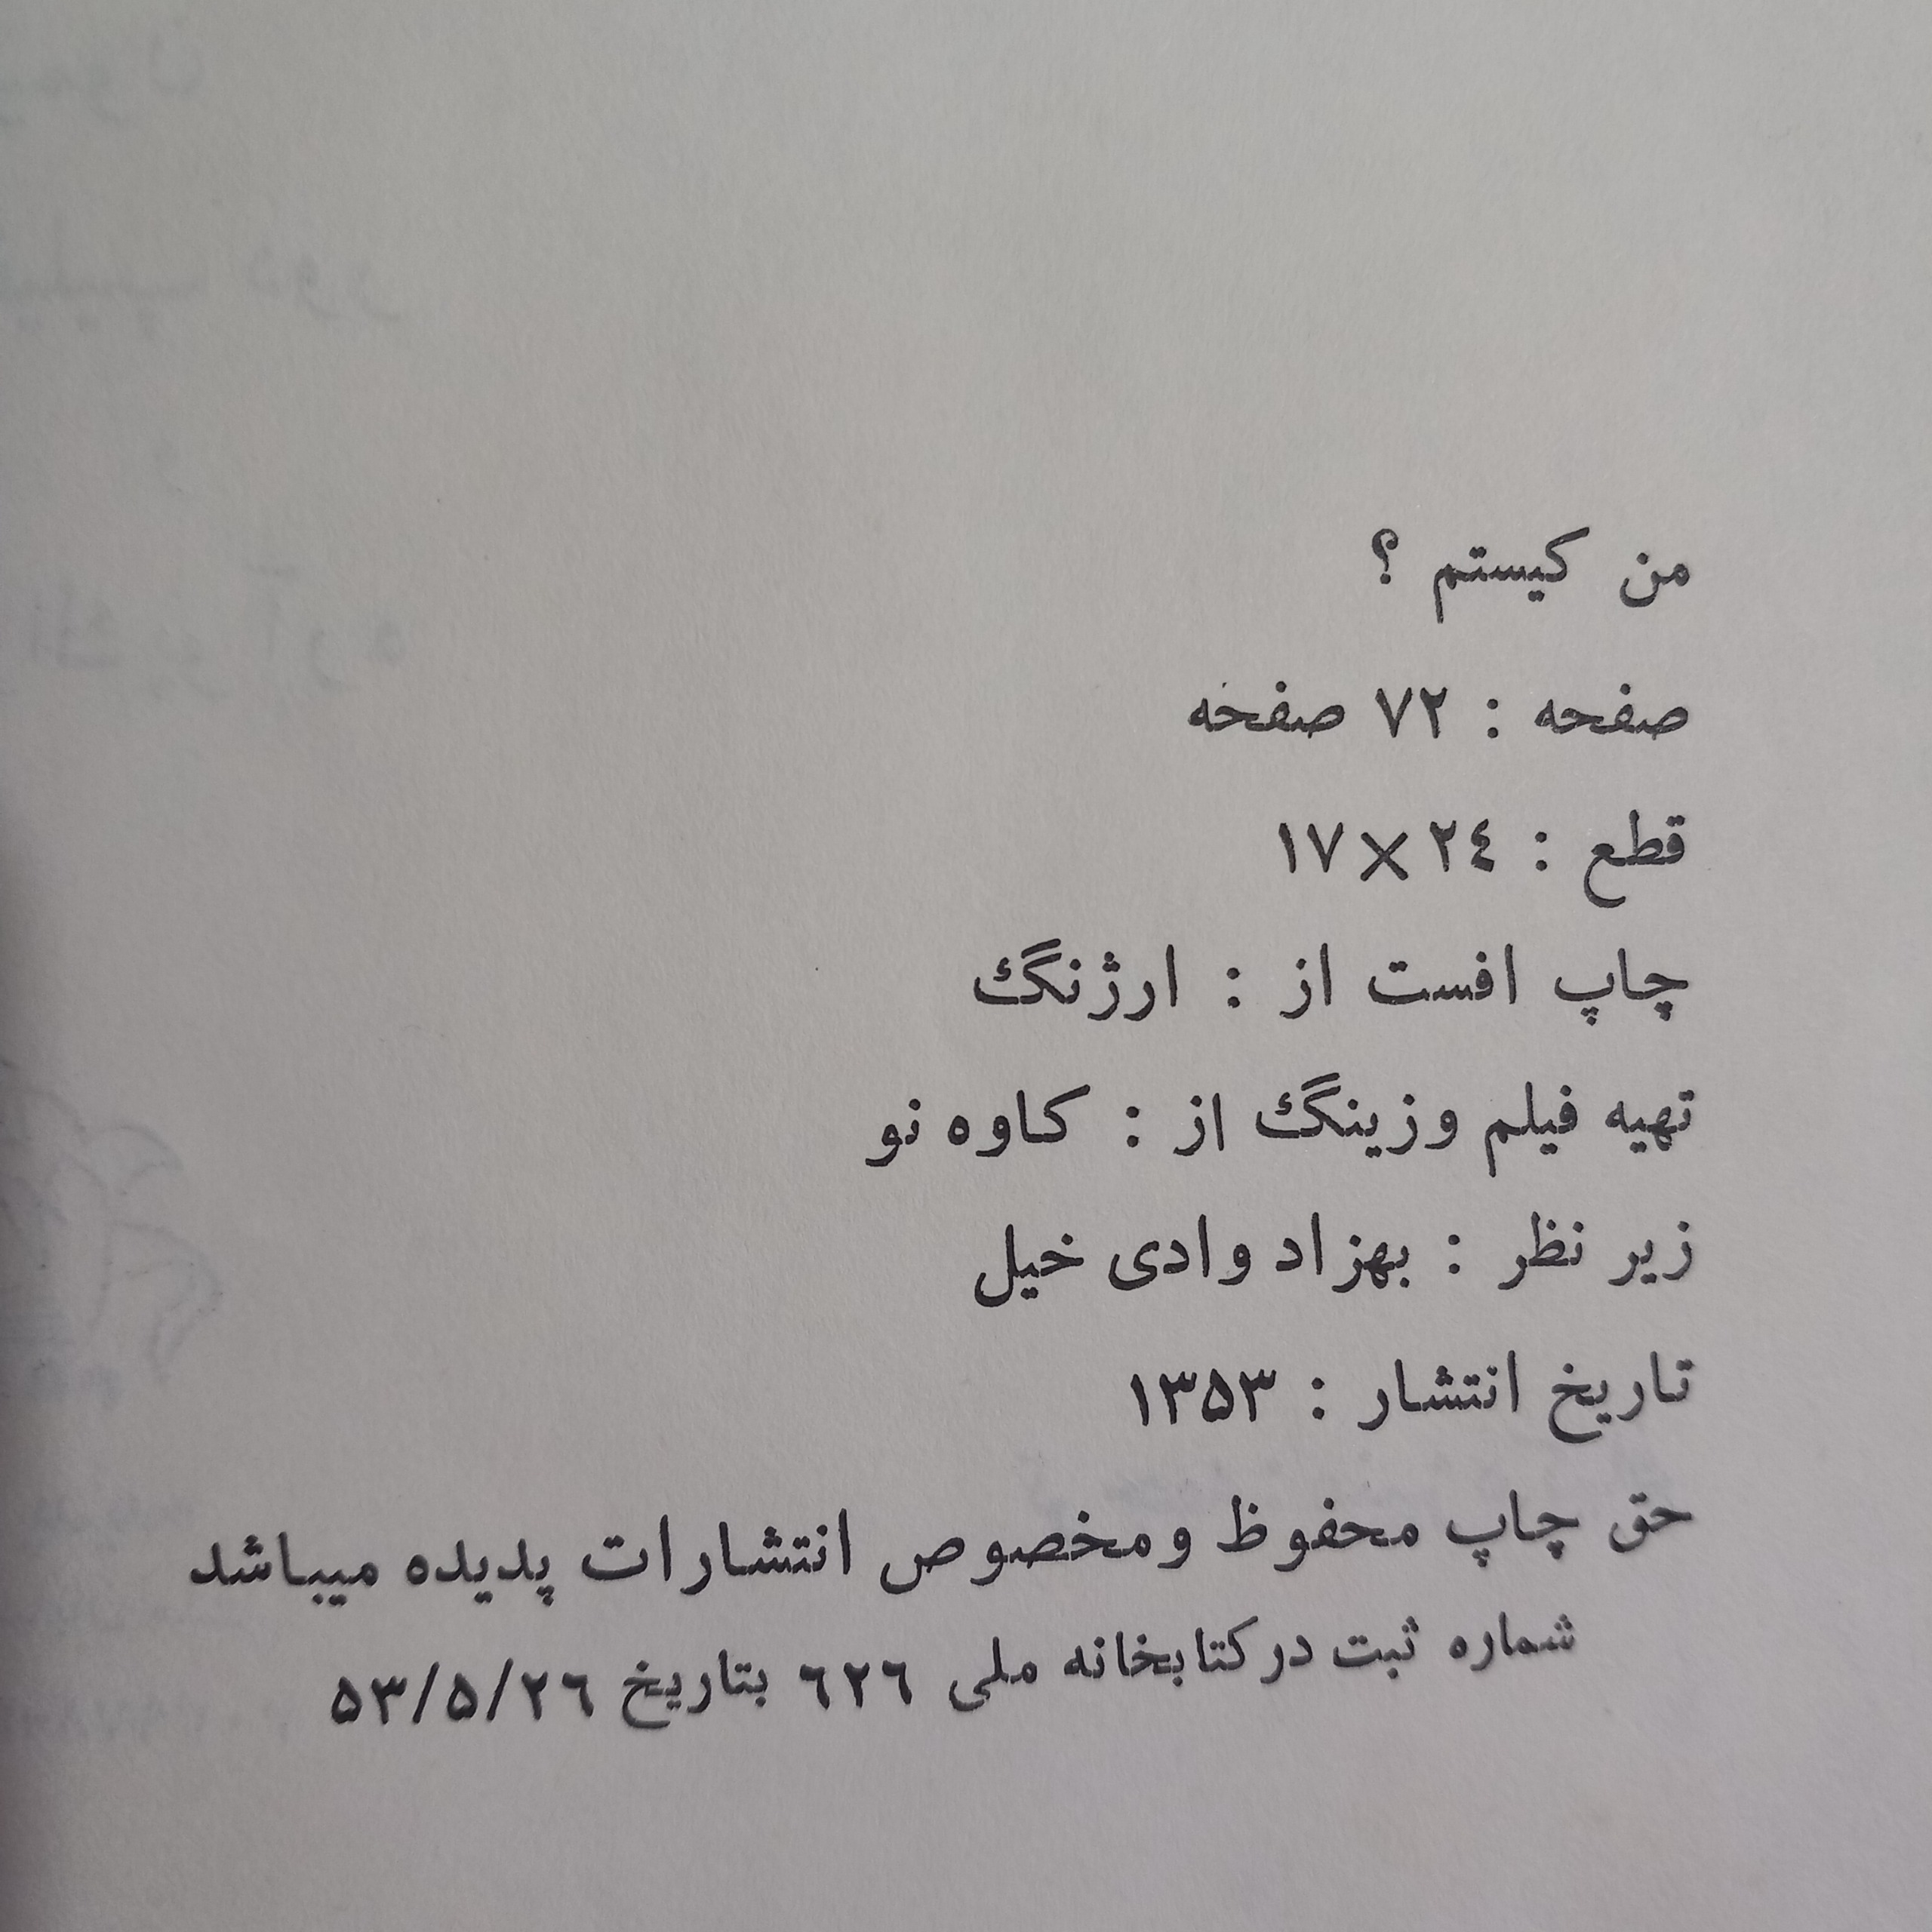 من کیستم ؟
صفحه : ۷۲ صفحه
قطع : ۱۷×۲٤
چاپ افست از : ارژنگ
تهیه فیلم وزینگ از : کاوه نو
زیر نظر : بهزاد وادی خیل
تاریخ انتشار : ۱۳۵۳
حق چاپ محفوظ ومخصوص انتشارات پدیده میباشد
شماره ثبت درکتابخانه ملی ٦٢٦ بتاریخ ۵۳/۵/۲٦